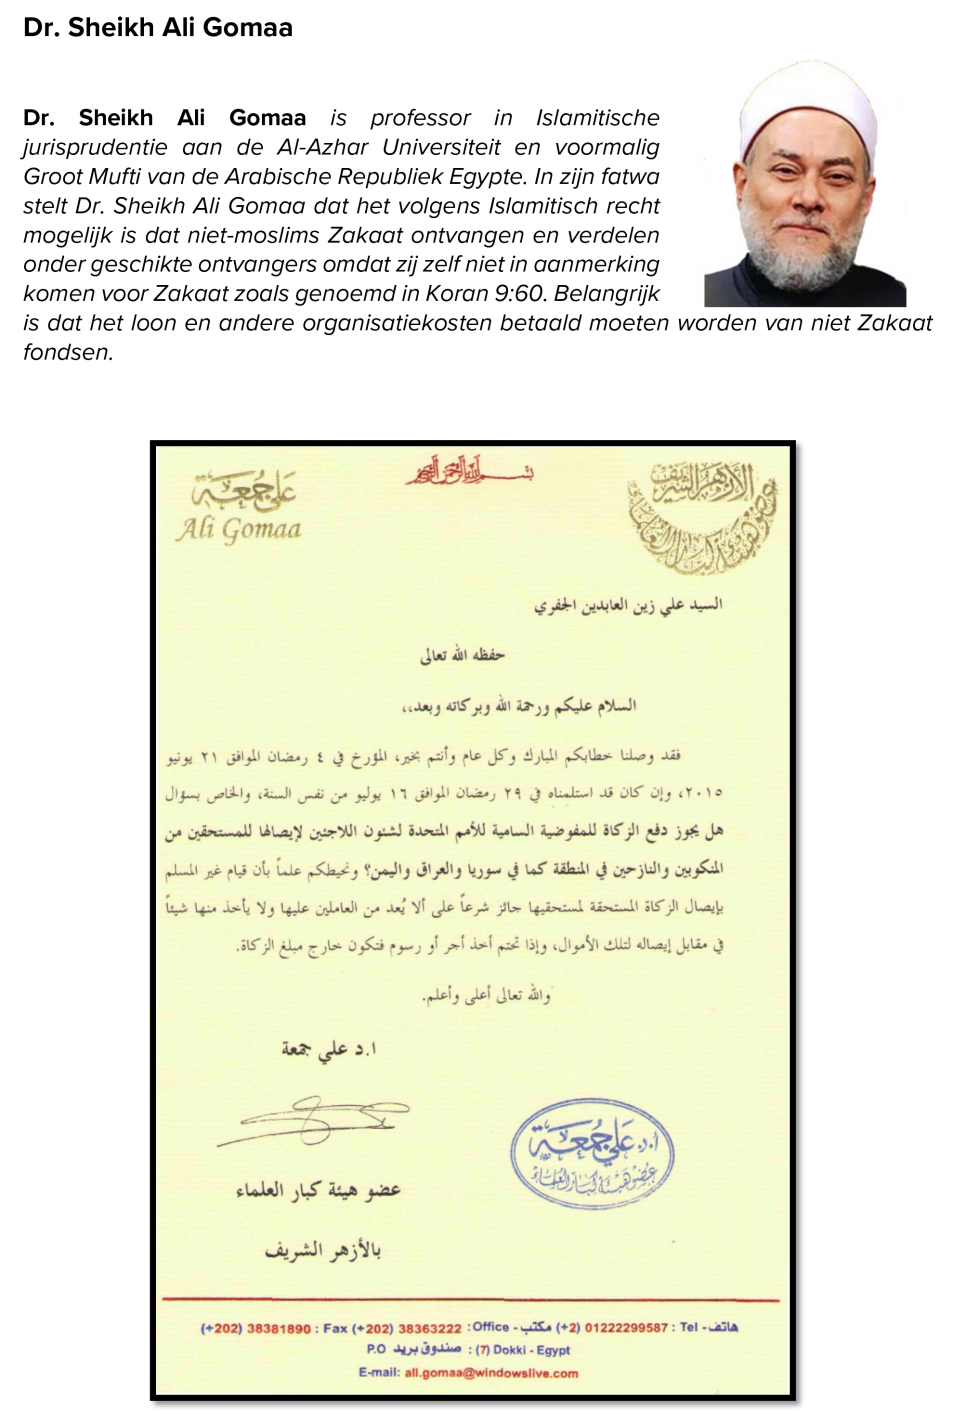 Dr. Sheikh Ali Gomaa
Dr. Sheikh Ali Gomaa is professor in Islamitische
jurisprudentie aan de Al-Azhar Universiteit en voormalig
Groot Mufti van de Arabische Republiek Egypte. In zijn fatwa
stelt Dr. Sheikh Ali Gomaa dat het volgens Islamitisch recht
mogelijk is dat niet-moslims Zakaat ontvangen en verdelen
onder geschikte ontvangers omdat zij zelf niet in aanmerking
komen voor Zakaat zoals genoemd in Koran 9:60. Belangrijk
is dat het loon en andere organisatiekosten betaald moeten worden van niet Zakaat
fondsen.
بسم الله الرحمن الرحيم
علي جمعة
Ali Gomaa
الأزهر الشريف
عضو هيئة كبار العلماء
السيد علي زين العابدين الجفري
حفظه الله تعالى
السلام عليكم ورحمة الله وبركاته وبعد،،
فقد وصلنا خطابكم المبارك وكل عام وأنتم بخير، المؤرخ في ٤ رمضان الموافق ٢١ يونيو
٢٠١٥، وإن كان قد استلمناه في ٢٩ رمضان الموافق ١٦ يوليو من نفس السنة، والخاص بسؤال
هل يجوز دفع الزكاة للمفوضية السامية للأمم المتحدة لشئون اللاجئين لإيصالها للمستحقين من
المنكوبين والنازحين في المنطقة كما في سوريا والعراق واليمن؟ ونحيطكم علماً بأن قيام غير المسلم
بإيصال الزكاة المستحقة لمستحقيها جائز شرعاً على ألا يُعد من العاملين عليها ولا يأخذ منها شيئاً
في مقابل إيصاله لتلك الأموال، وإذا تحتم أخذ أجر أو رسوم فتكون خارج مبلغ الزكاة.
والله تعالى أعلى وأعلم.
ا.د علي جمعة
أ.د. علي جمعة
عضو هيئة كبار العلماء
عضو هيئة كبار العلماء
بالأزهر الشريف
(+202) 38381890 : Fax (+202) 38363222 :Office - مكتب (+2) 01222299587 : Tel - هاتف
P.O صندوق بريد : (7) Dokki - Egypt
E-mail: ali.gomaa@windowslive.com